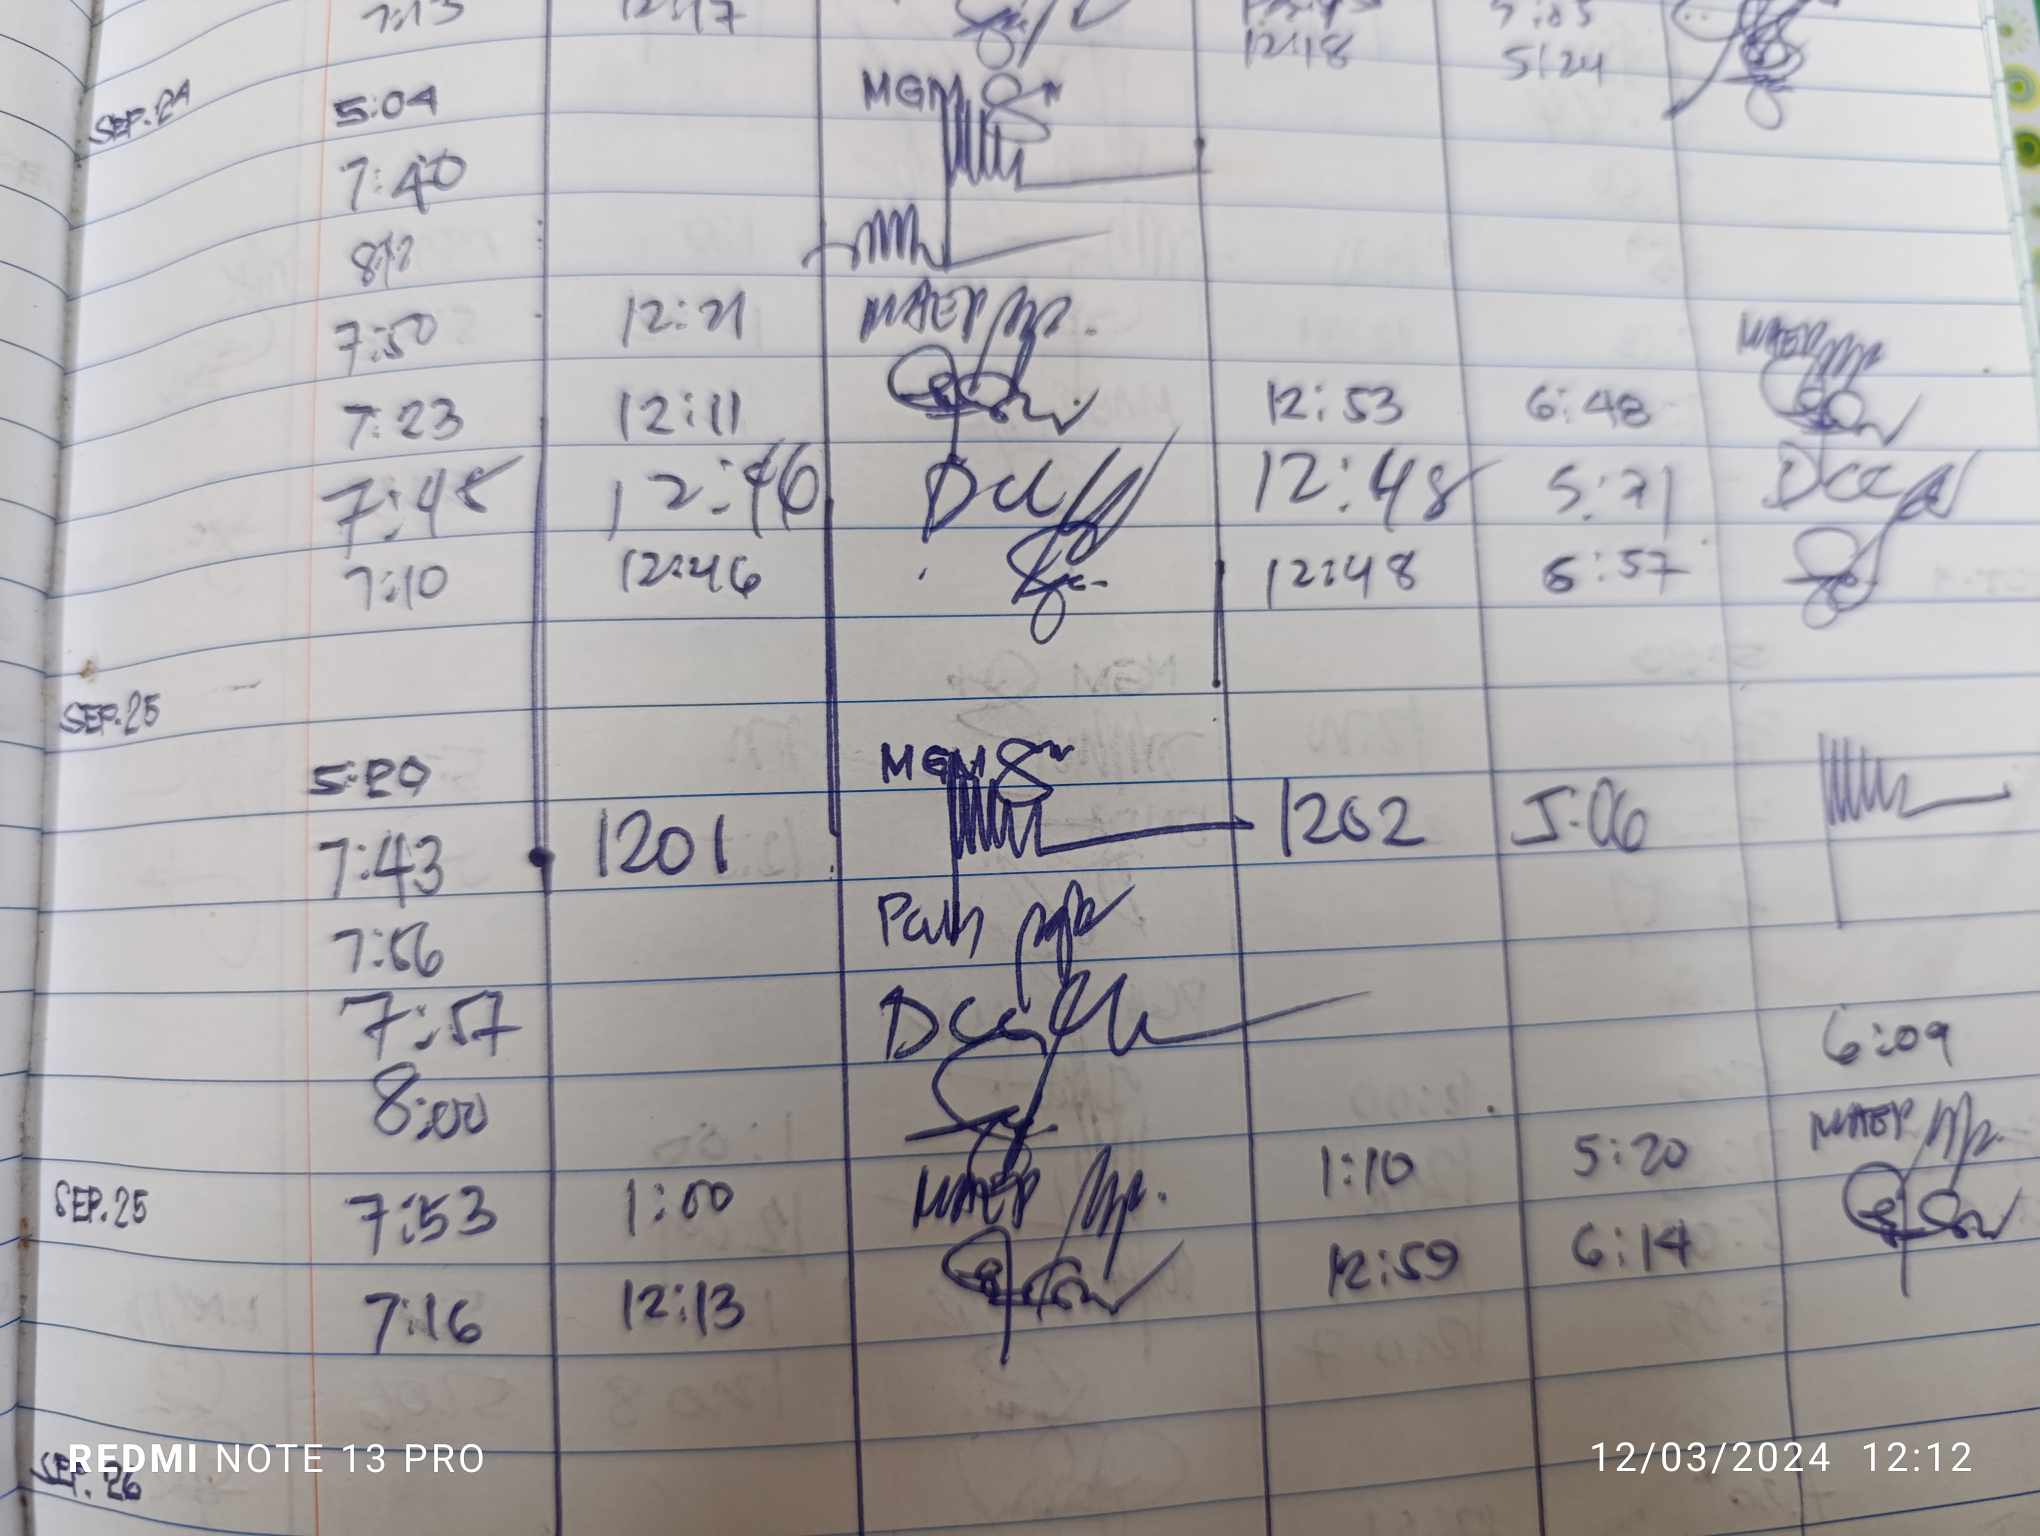 7:13 12:17
12:18 5:24
SEP. 24 5:04 MGM
7:40
7:50 12:21 MAEP MAEP
7:23 12:11 12:53 6:48
7:45 12:46 DCC 12:48 5:21 DCC
7:10 12:46 12:48 6:57
SEP. 25
5:20 MGM
7:43 1201 1202 5:06
7:56
7:57 DCC
8:00 6:09
SEP. 25 7:53 1:00 MAEP 1:10 5:20 MAEP
7:16 12:13 12:59 6:14
SEP. 26
REDMI NOTE 13 PRO 12/03/2024 12:12